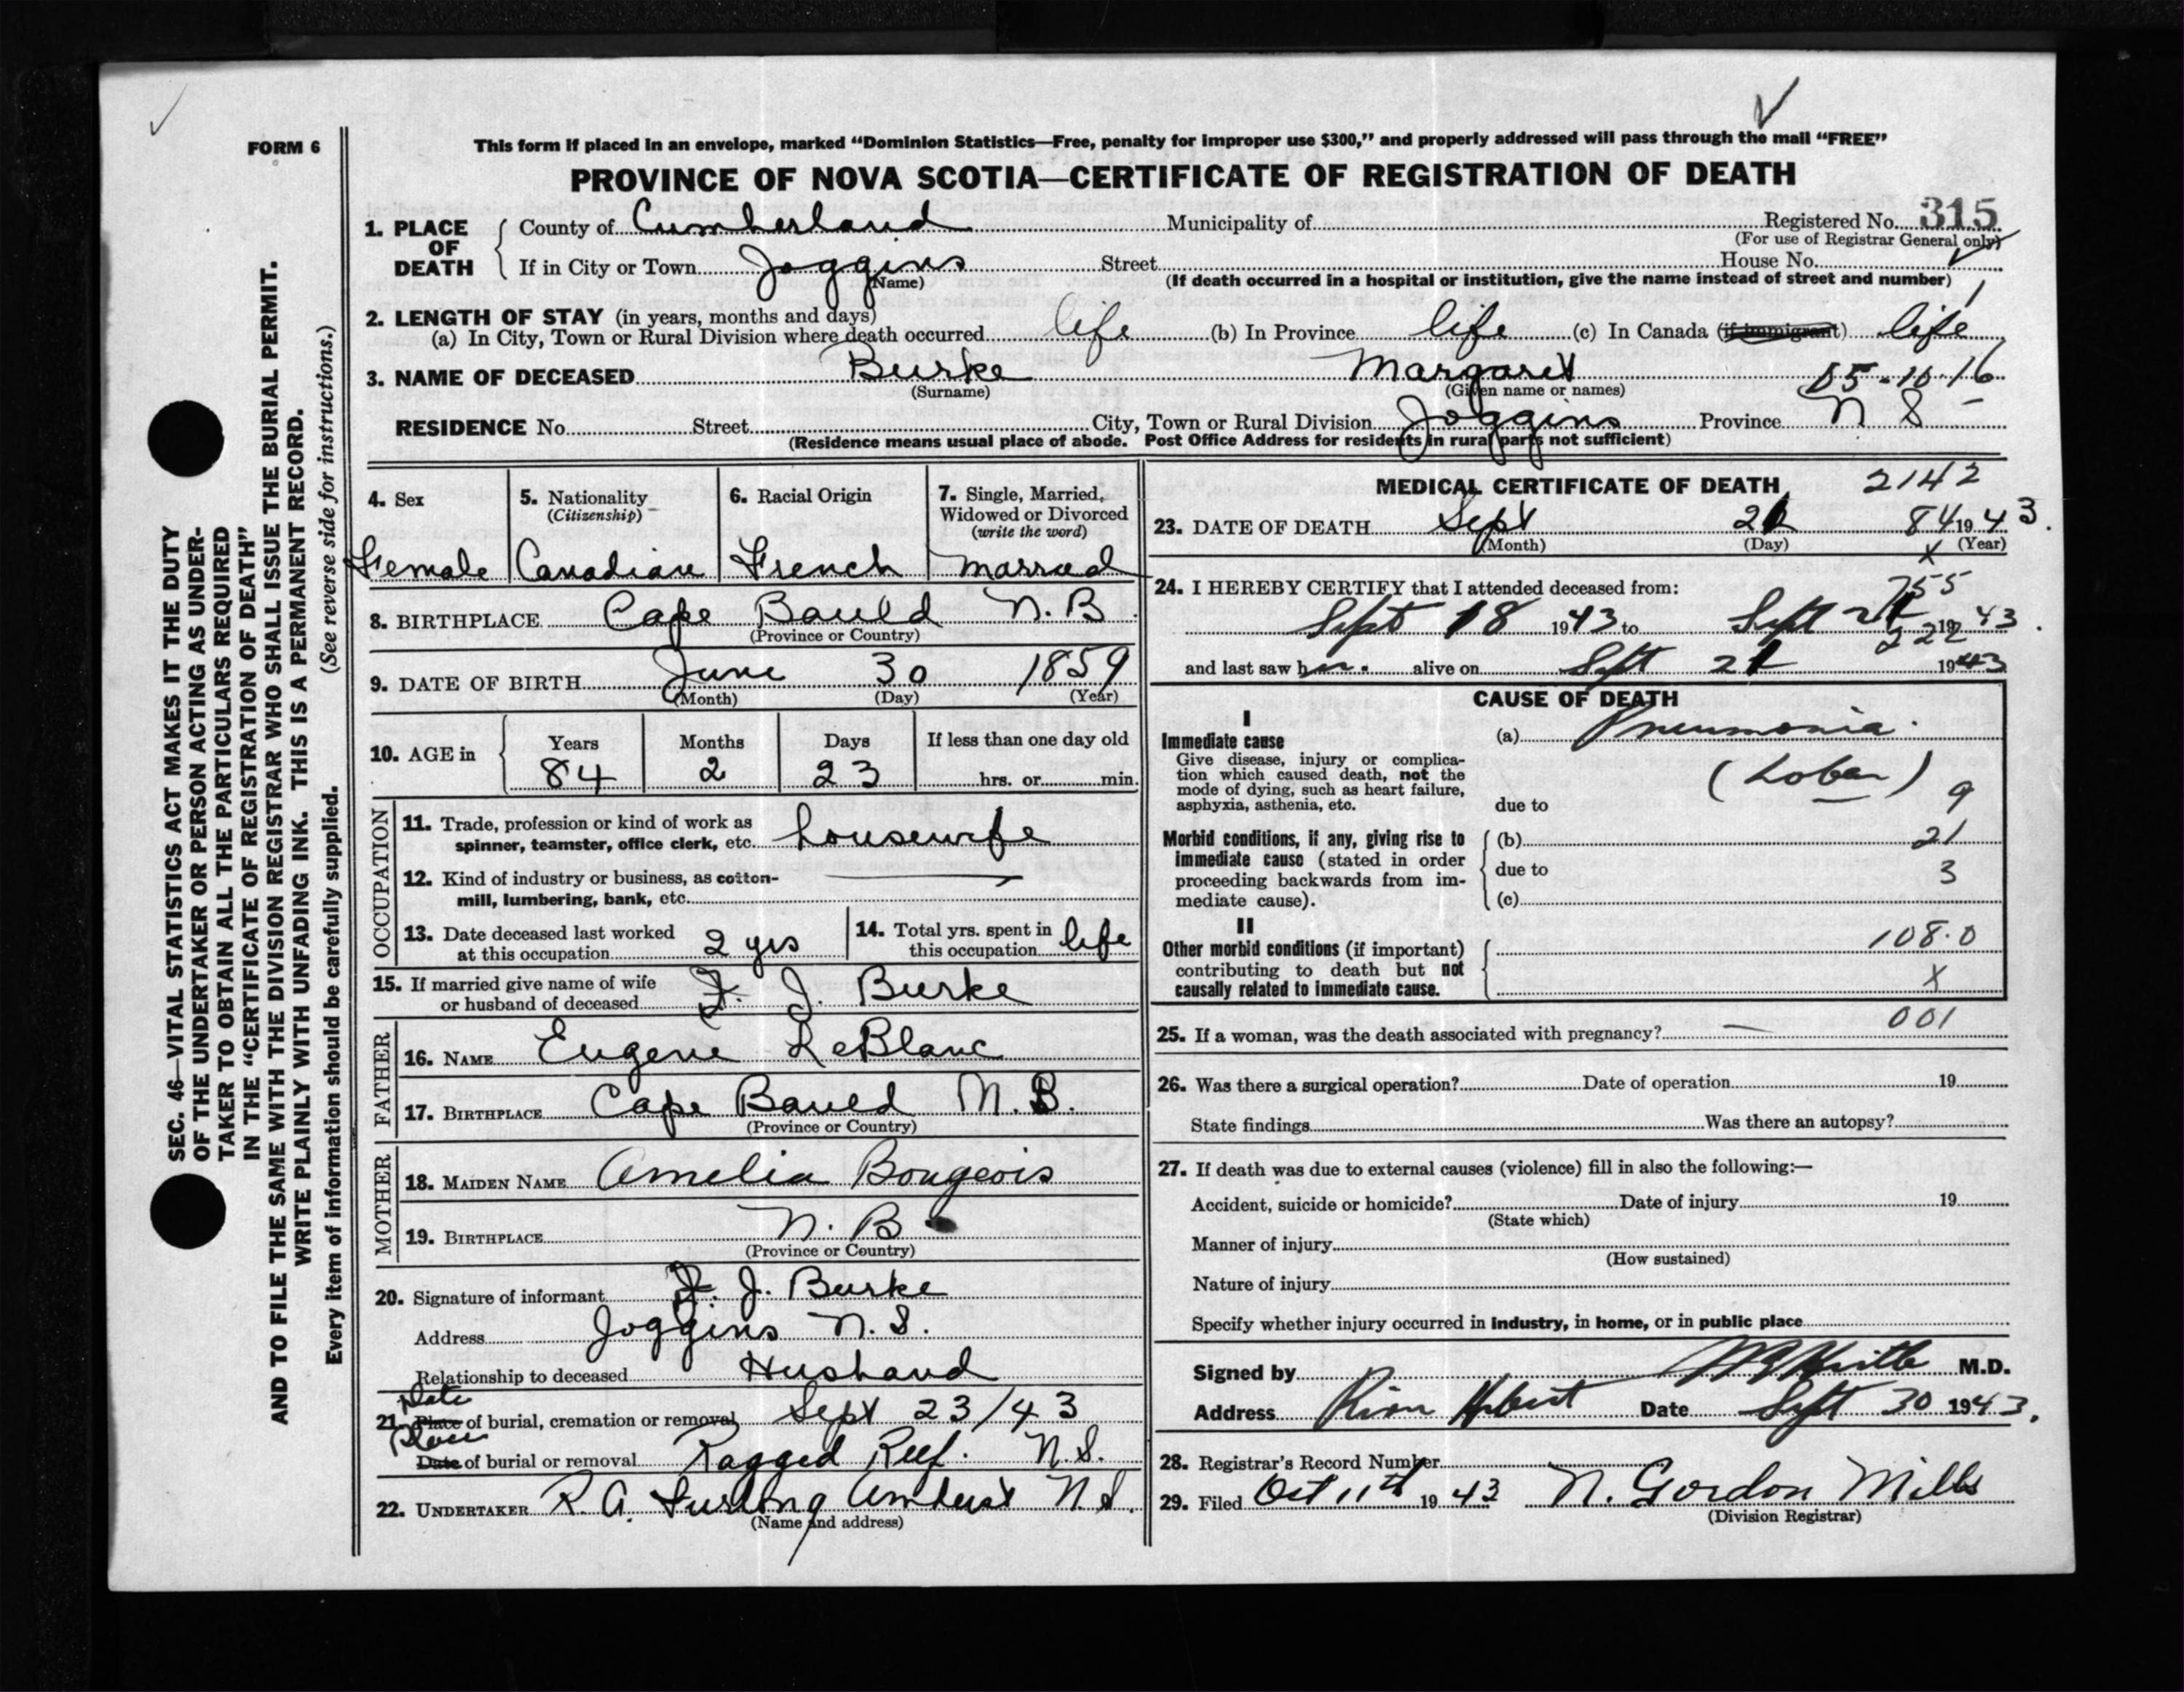 FORM 6
This form if placed in an envelope, marked "Dominion Statistics—Free, penalty for improper use $300," and properly addressed will pass through the mail "FREE"
PROVINCE OF NOVA SCOTIA—CERTIFICATE OF REGISTRATION OF DEATH
1. PLACE OF DEATH
County of Cumberland Municipality of Registered No. 315
(For use of Registrar General only)
If in City or Town Joggins Street House No.
(Name) (If death occurred in a hospital or institution, give the name instead of street and number)
2. LENGTH OF STAY (in years, months and days)
(a) In City, Town or Rural Division where death occurred life (b) In Province life (c) In Canada (if immigrant) life
3. NAME OF DECEASED Burke Margaret
(Surname) (Given name or names) 05-10-16
RESIDENCE No. Street City, Town or Rural Division Joggins Province N S
(Residence means usual place of abode. Post Office Address for residents in rural parts not sufficient)
4. Sex
Female
5. Nationality
(Citizenship)
Canadian
6. Racial Origin
French
7. Single, Married,
Widowed or Divorced
(write the word)
Married
8. BIRTHPLACE Cape Bauld N.B.
(Province or Country)
9. DATE OF BIRTH June 30 1859
(Month) (Day) (Year)
10. AGE in
Years Months Days If less than one day old
84 2 23 hrs. or min.
OCCUPATION
11. Trade, profession or kind of work as
spinner, teamster, office clerk, etc. housewife
12. Kind of industry or business, as cotton-
mill, lumbering, bank, etc.
13. Date deceased last worked
at this occupation 2 yrs
14. Total yrs. spent in
this occupation life
15. If married give name of wife
or husband of deceased J. Burke
FATHER
16. NAME Eugene LeBlanc
17. BIRTHPLACE Cape Bauld N.B.
(Province or Country)
MOTHER
18. MAIDEN NAME Amelia Bougeois
19. BIRTHPLACE N. B
(Province or Country)
20. Signature of informant J. Burke
Address Joggins N.S.
Relationship to deceased Husband
Date
21. Place of burial, cremation or removal Sept 23/43
Place
Date of burial or removal Ragged Reef. N.S.
22. UNDERTAKER R.A. Furlong Amherst N.S.
(Name and address)
MEDICAL CERTIFICATE OF DEATH 2142
23. DATE OF DEATH Sept 84 1943.
(Month) (Day) (Year)
X
24. I HEREBY CERTIFY that I attended deceased from:
755
Sept 18 1943 to Sept 1943.
222
and last saw h alive on Sept 1943
CAUSE OF DEATH
I
Immediate cause
Give disease, injury or complica-
tion which caused death, not the
mode of dying, such as heart failure,
asphyxia, asthenia, etc.
(a) Pneumonia.
(Lobar)
due to 9
Morbid conditions, if any, giving rise to
immediate cause (stated in order
proceeding backwards from im-
mediate cause).
(b) 21
due to 3
(c)
II
Other morbid conditions (if important)
contributing to death but not
causally related to immediate cause.
108.0
X
25. If a woman, was the death associated with pregnancy? — 001
26. Was there a surgical operation? Date of operation 19
State findings Was there an autopsy?
27. If death was due to external causes (violence) fill in also the following:—
Accident, suicide or homicide? Date of injury 19
(State which)
Manner of injury
(How sustained)
Nature of injury
Specify whether injury occurred in industry, in home, or in public place
Signed by M.D.
Address River Hebert Date Sept 30 1943.
28. Registrar's Record Number
29. Filed Oct 11th 1943 N. Gordon Mills
(Division Registrar)
SEC. 46—VITAL STATISTICS ACT MAKES IT THE DUTY
OF THE UNDERTAKER OR PERSON ACTING AS UNDER-
TAKER TO OBTAIN ALL THE PARTICULARS REQUIRED
IN THE "CERTIFICATE OF REGISTRATION OF DEATH"
AND TO FILE THE SAME WITH THE DIVISION REGISTRAR WHO SHALL ISSUE THE BURIAL PERMIT.
WRITE PLAINLY WITH UNFADING INK. THIS IS A PERMANENT RECORD.
Every item of information should be carefully supplied. (See reverse side for instructions.)